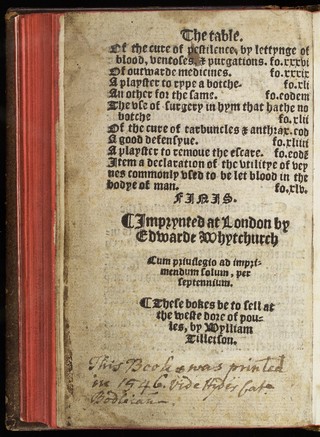 The table.
Of the cure of pestilence, by lettynge of
blood, ventoses, & purgations. fo.xxxvi
Of outwarde medicines. fo.xxxix
A playster to rype a botche. fo.xli
An other for the same. fo.eodem
The vse of surgery in hym that hathe no
botche fo.xlii
Of the cure of carbuncles & anthrax. eod
A good defensyue. fo.xliiii
A playster to remoue the escare. fo.eodē
Item a declaration of the vtilitye of vey
nes commonly vsed to be let blood in the
bodye of man. fo.xlv.
FINIS.
¶Imprynted at London by
Edwarde Whytchurch
Cum priuilegio ad impri-
mendum solum, per
septennium.
¶These bokes be to sell at
the weste dore of pou-
les, by Wylliam
Tillotson.
This Book was printed
in 1546. Vide Hydes Cat.
Bodleian